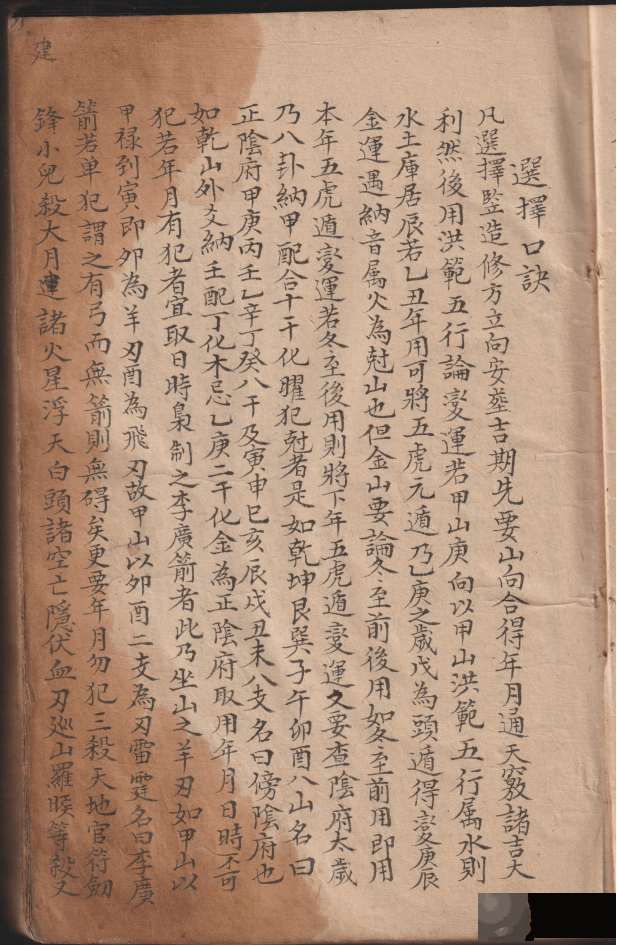 選擇口訣
凡選擇監造修方立向安塟吉期先要山向合得年月通天竅諸吉大
利然後用洪範五行論變運若甲山庚向以甲山洪範五行属水則
水土庫居辰若乙丑年用可將五虎元遁乃乙庚之歲戊為頭遁得變庚辰
金運遇納音属火為尅山也但金山要論冬至前後用如冬至前用即用
本年五虎遁變運若冬至後用則將下年五虎遁變運又要查陰府太歲
乃八卦納甲配合十干化曜犯尅者是如乾坤艮巽子午卯酉八山名曰
正陰府甲庚丙壬乙辛丁癸八干及寅申巳亥辰戌丑未八支名曰傍陰府也
如乾山外爻納壬配丁化木忌乙庚二干化金為正陰府取用年月日時不可
犯若年月有犯者宜取日時梟制之李廣箭者此乃坐山之羊刃如甲山以
甲禄到寅即卯為羊刃酉為飛刃故甲山以卯酉二支為刃雷霆名曰李廣
箭若单犯謂之有弓而無箭則無碍矣更要年月勿犯三殺天地官符劍
鋒小兒殺大月建諸火星浮天白頭諸空亡隱伏血刃廵山羅睺等殺又
建